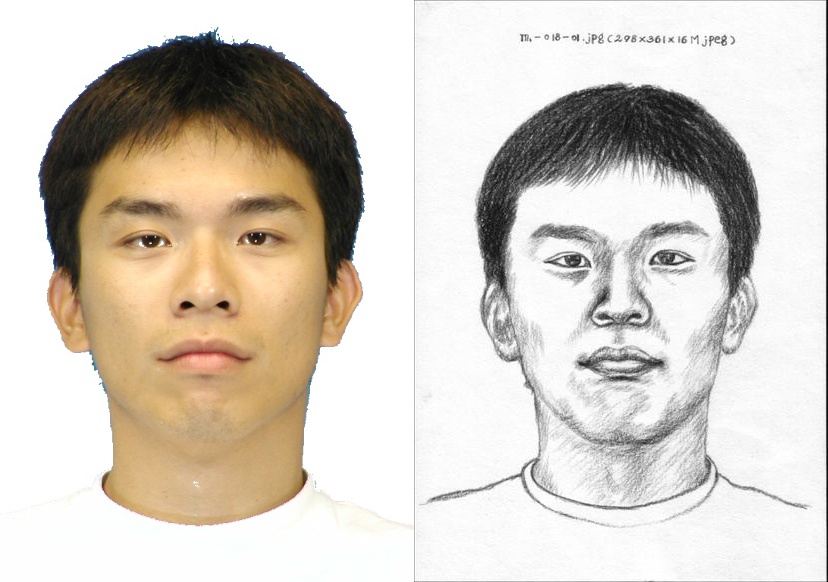 m-018-01.jpg(298×361×16M jpeg)